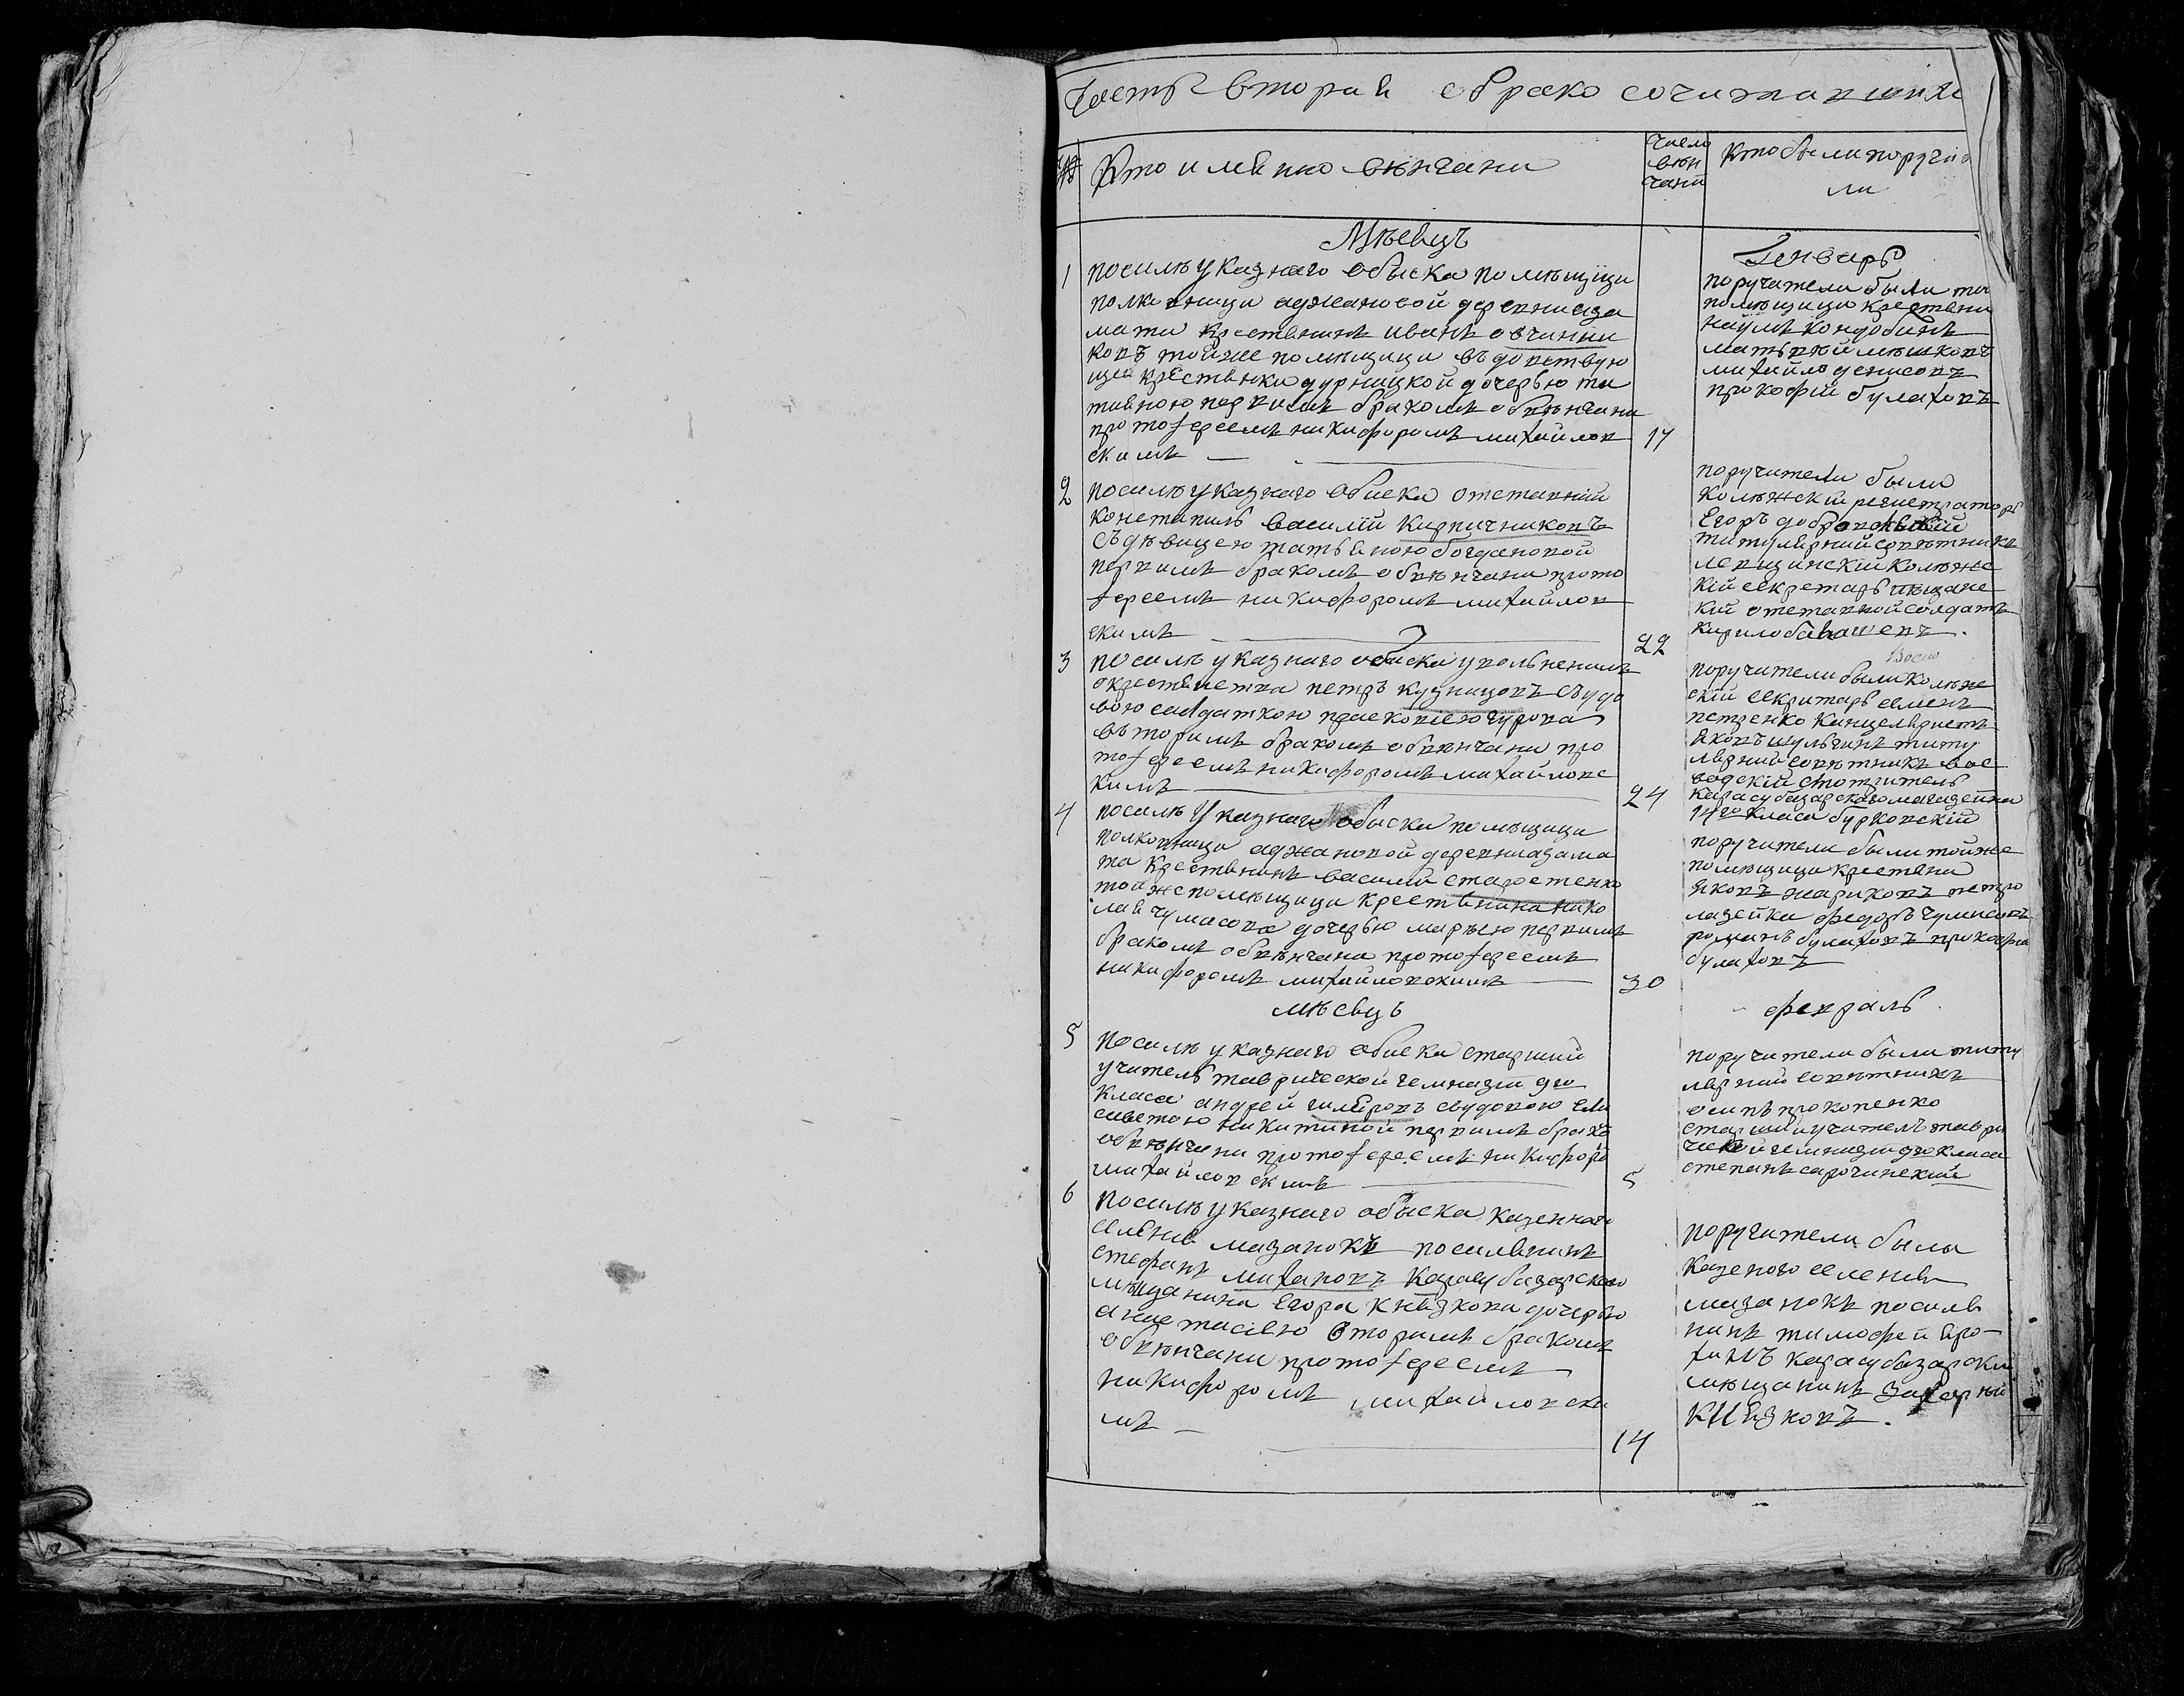 Часть вторая о брако сочитавшихс
№ Кто имянно венчани
Число вен чани
Кто были поручи ли
Месяцъ
Генварь
1 по силе указнаго обыска помещици
полковници аджановой деревни аза
мата крестянинъ иванъ овчинни
ковъ тойже помещици въдовствую
щей крестянки дурницкой дочерью та
тияною первимъ бракомъ обвенчани
протоіереемъ никифоромъ михайлов
скимъ
17
поручители были той
помещици крестяни
наумъ кондобинъ
матьвей мешковъ
михайло денисовъ
прокофій булаховъ
2 по силе указнаго обиска отставній
констапиль василій кирпичниковъ
съ девицею татьяною богдановой
первимъ бракомъ обвенчани прото
іереемъ никифоромъ михайлов
скимъ
22
поручители были
колежскій регистраторъ
Егоръ
титулярний советникъ
колеже
кій секретарь
кій отставной солдатъ
кирило
3 по силе указнаго обиска уволненимъ
петръ кузницовъ съ вдо
вою салдаткою прасковіею гурова
въторимъ бракомъ обвенчани про
тоіереемъ никифоромъ михайловс
кимъ
24
поручители были колеже
скій секритарь семенъ
петренко канцеляристъ
яковъ шульгинъ титу
лярний советникъ вое
водскій смотритель
карасубазарскаго магазейна
14го класа бурковскій
4 по силе указнаго обыска помещици
полковници аджановой деревни азама
та крестянинъ василій старостенко
тойже помещици крестянина нико
лая чумасова дочерью марьею первимъ
бракомъ обвенчани протоіереемъ
никифоромъ михайловскимъ
30
поручители были тойже
помещици крестяни
яковъ жариковъ петро
лазейка федоръ чумасовъ
романъ булаховъ прокофи
булаховъ
месяцъ
февраль
5 по силе указнаго обиска старший
учитель таврической гемназіи 9го
класа андрей съ вдовою ели
саветою никитиной первимъ брако
обвенчани протоіереемъ никифоро
михайловскимъ
5
поручители были титу
лярний советникъ
осипъ прокопенко
старший учителъ таври
ческой гемназіи 9го класа
степанъ сарочинский
6 по силе указнаго обыска казеннаго
селения мазанокъ посилянинъ
стефанъ михановъ карасубазарскаго
мещанина Егора князкова дочерью
анастасіею вторимъ бракомъ
обвенчани протоіереемъ
никифоромъ михайловски
мъ
14
поручители были
казеного селения
мазанокъ посиля
нинъ тимофей еро-
хинъ карасубазарский
мещанинъ захарий
князковъ.